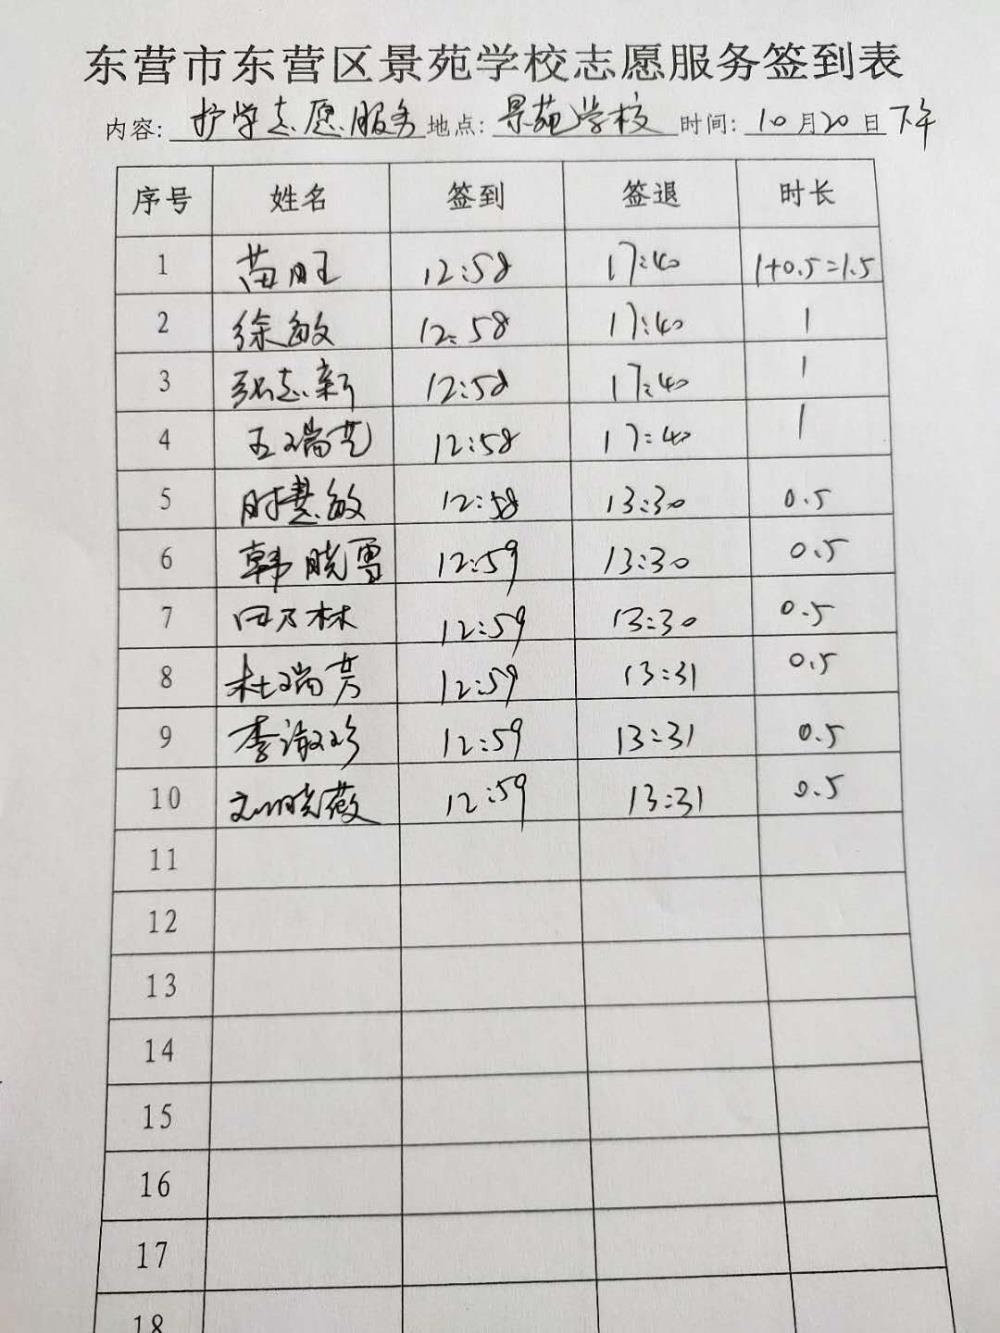 东营市东营区景苑学校志愿服务签到表
内容: 护学志愿服务 地点: 景苑学校 时间: 10月20日下午
序号 姓名 签到 签退 时长
1 苗旺 12:58 17:40 1+0.5=1.5
2 徐敏 12:58 17:40 1
3 张志新 12:58 17:40 1
4 王瑞芝 12:58 17:40 1
5 时慧敏 12:58 13:30 0.5
6 韩晓雪 12:59 13:30 0.5
7 田乃林 12:59 13:30 0.5
8 杜瑞芳 12:59 13:31 0.5
9 李淑珍 12:59 13:31 0.5
10 刘晓薇 12:59 13:31 0.5
11
12
13
14
15
16
17
18